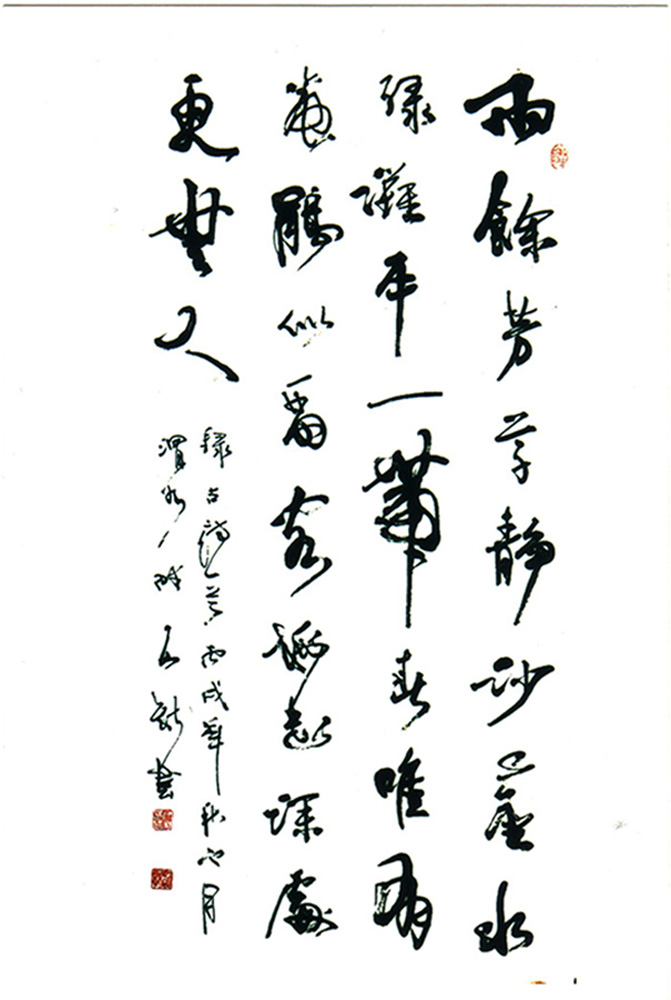 雨餘芳草靜沙塵水
綠灘平一帶春唯有
鵑似留客深處
更無人
録古詩一首丙戌年秋月
渭水書